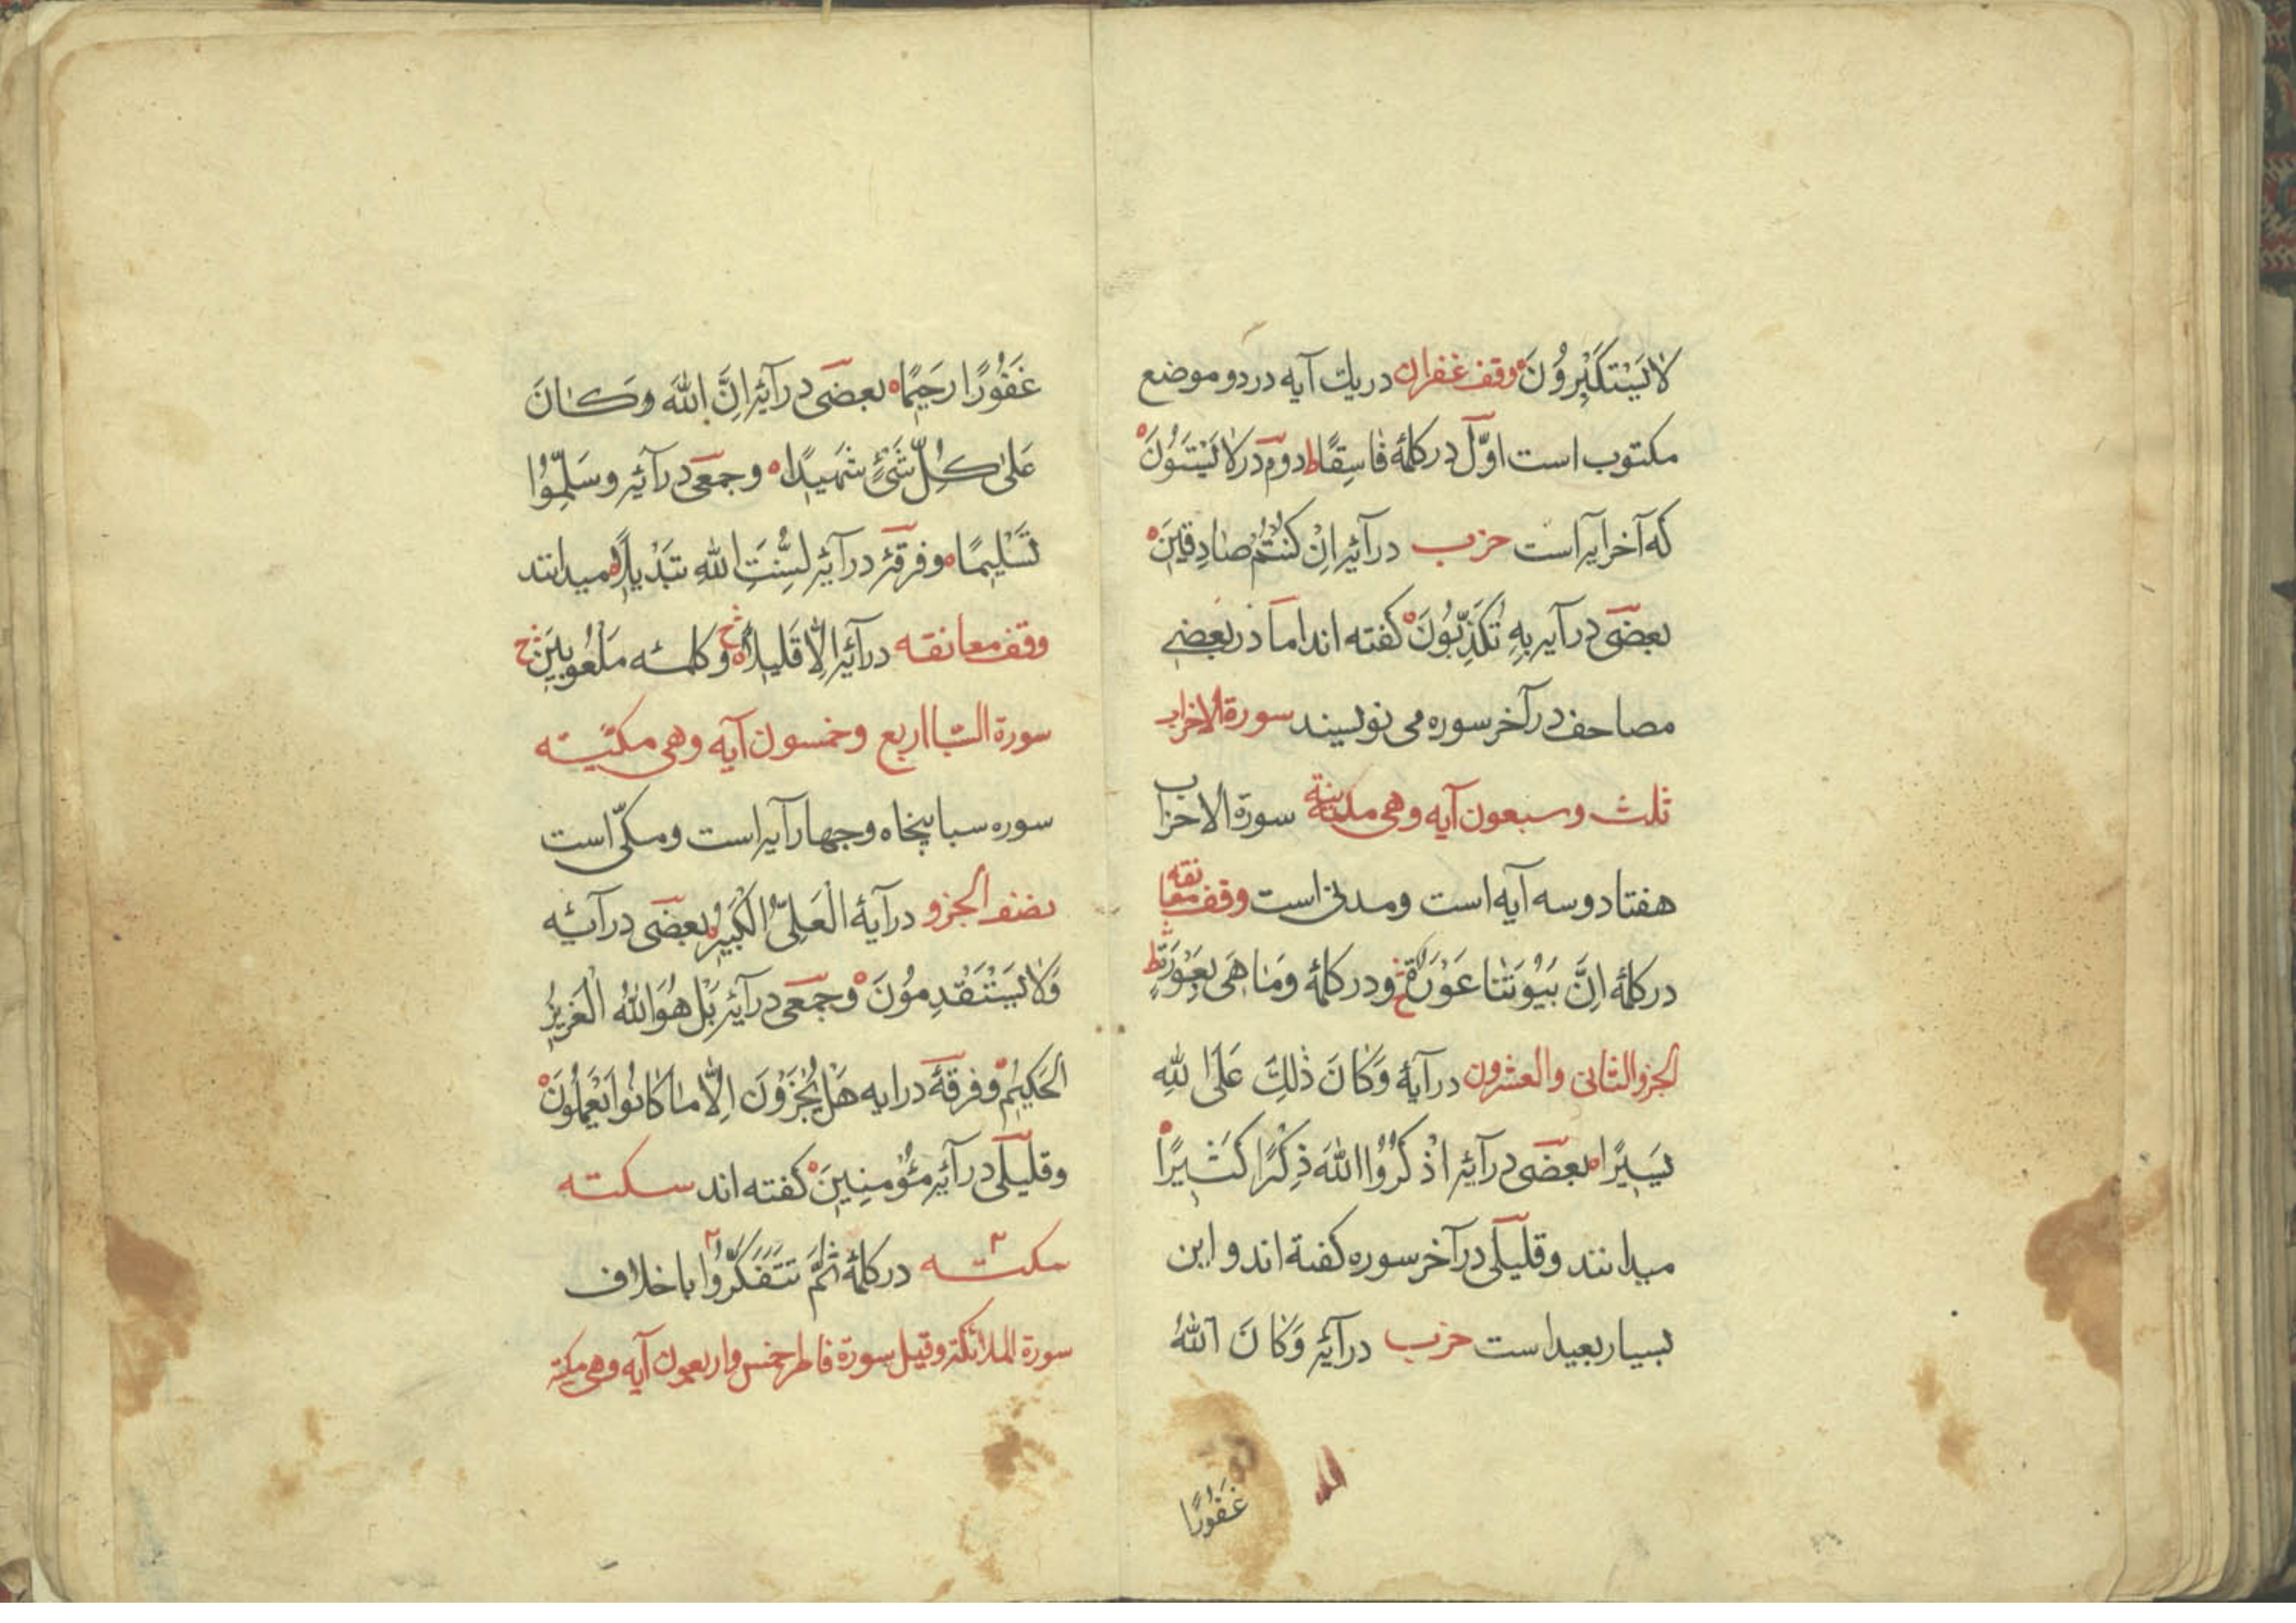 لَا يَسْتَكْبِرُونَ ه وقف غفران در یك آیه در دو موضع
مكتوب است اوّل در كلمۀ فَاسِقًا ط دوم در لَا يَسْتَوُنَ ه
كه آخر ایه است حزب در آیۀ اِنْ كُنْتُمْ صَادِقِينَ ه
بعضی در آیه بِهِ تُكَذِّبُونَ ه كفته اند اما در بعضے
مصاحف در آخر سوره می نویسند سورة الاحزاب
ثلث وسبعون آیه وهی مدنیة سورة الاحزاب
هفتاد وسه آیه است ومدنی است وقف معانقه
در كلمۀ اِنَّ بُيُوتَنَا عَوْرَةٌ ودر كلمۀ وَمَا هِىَ بِعَوْرَةٍ ط
الجزو الثانی والعشرون در آیۀ وَكَانَ ذٰلِكَ عَلَى اللّٰهِ
يَسِيرًا ه بعضی در آیۀ اذْكُرُوا اللّٰهَ ذِكْرًا كَثِيرًا ه
میدانند وقلیلی در آخر سوره كفتة اند و این
بسیار بعید است حزب در آیۀ وَكَانَ اللّٰهُ
غَفُورًا
غَفُورًا رَحِيمًا ه بعضی در آیۀ اِنَّ اللّٰهَ وَكَانَ
عَلٰى كُلِّ شَیْءٍ شَهِيدًا ه وجمعی در آیۀ وسَلِّمُوا
تَسْلِيمًا ه وفرقۀ در آیۀ لِسُنَّتِ اللّٰهِ تَبْدِيلًا ه میدانند
وقف معانقه در آیۀ اِلَّا قَلِيلًا ه وكلمئه مَلْعُوبِينَ
سورة السّبا اربع وخمسون آیه وهی مكیّته
سوره سبا پنجاه وچهار آیه است ومكّی است
نصف الجزو در آیۀ الْعَلِىُّ الْكَبِيرُ ه بعضی در آیئه
وَلَا يَسْتَقْدِمُونَ ه وجمعی در آیۀ بَلْ هُوَ اللّٰهُ الْعَزِيزُ
الحَكِيمُ ه وفرقۀ در ایه هَلْ يُجْزَوْنَ اِلَّا مَا كَانُوا يَعْمَلُونَ ه
وقلیلی در آیۀ مُؤْمِنِينَ ه كفته اند سكته
مكته در كلمۀ ثُمَّ تَتَفَكَّرُوا با خلاف
سورة الملائكة وقیل سورة فاطر خمس واربعون آیه وهی مكیة